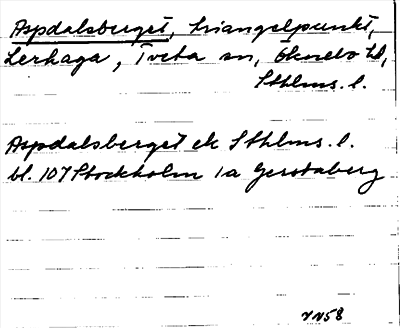 Aspdalsberget, triangelpunkt,
Lerhaga, Tveta sn, Öknebo hd,
Sthlms. l.
Aspdalsberget ek Sthlms. l.
bl. 107 Stockholm 1a Gerstaberg
VN58